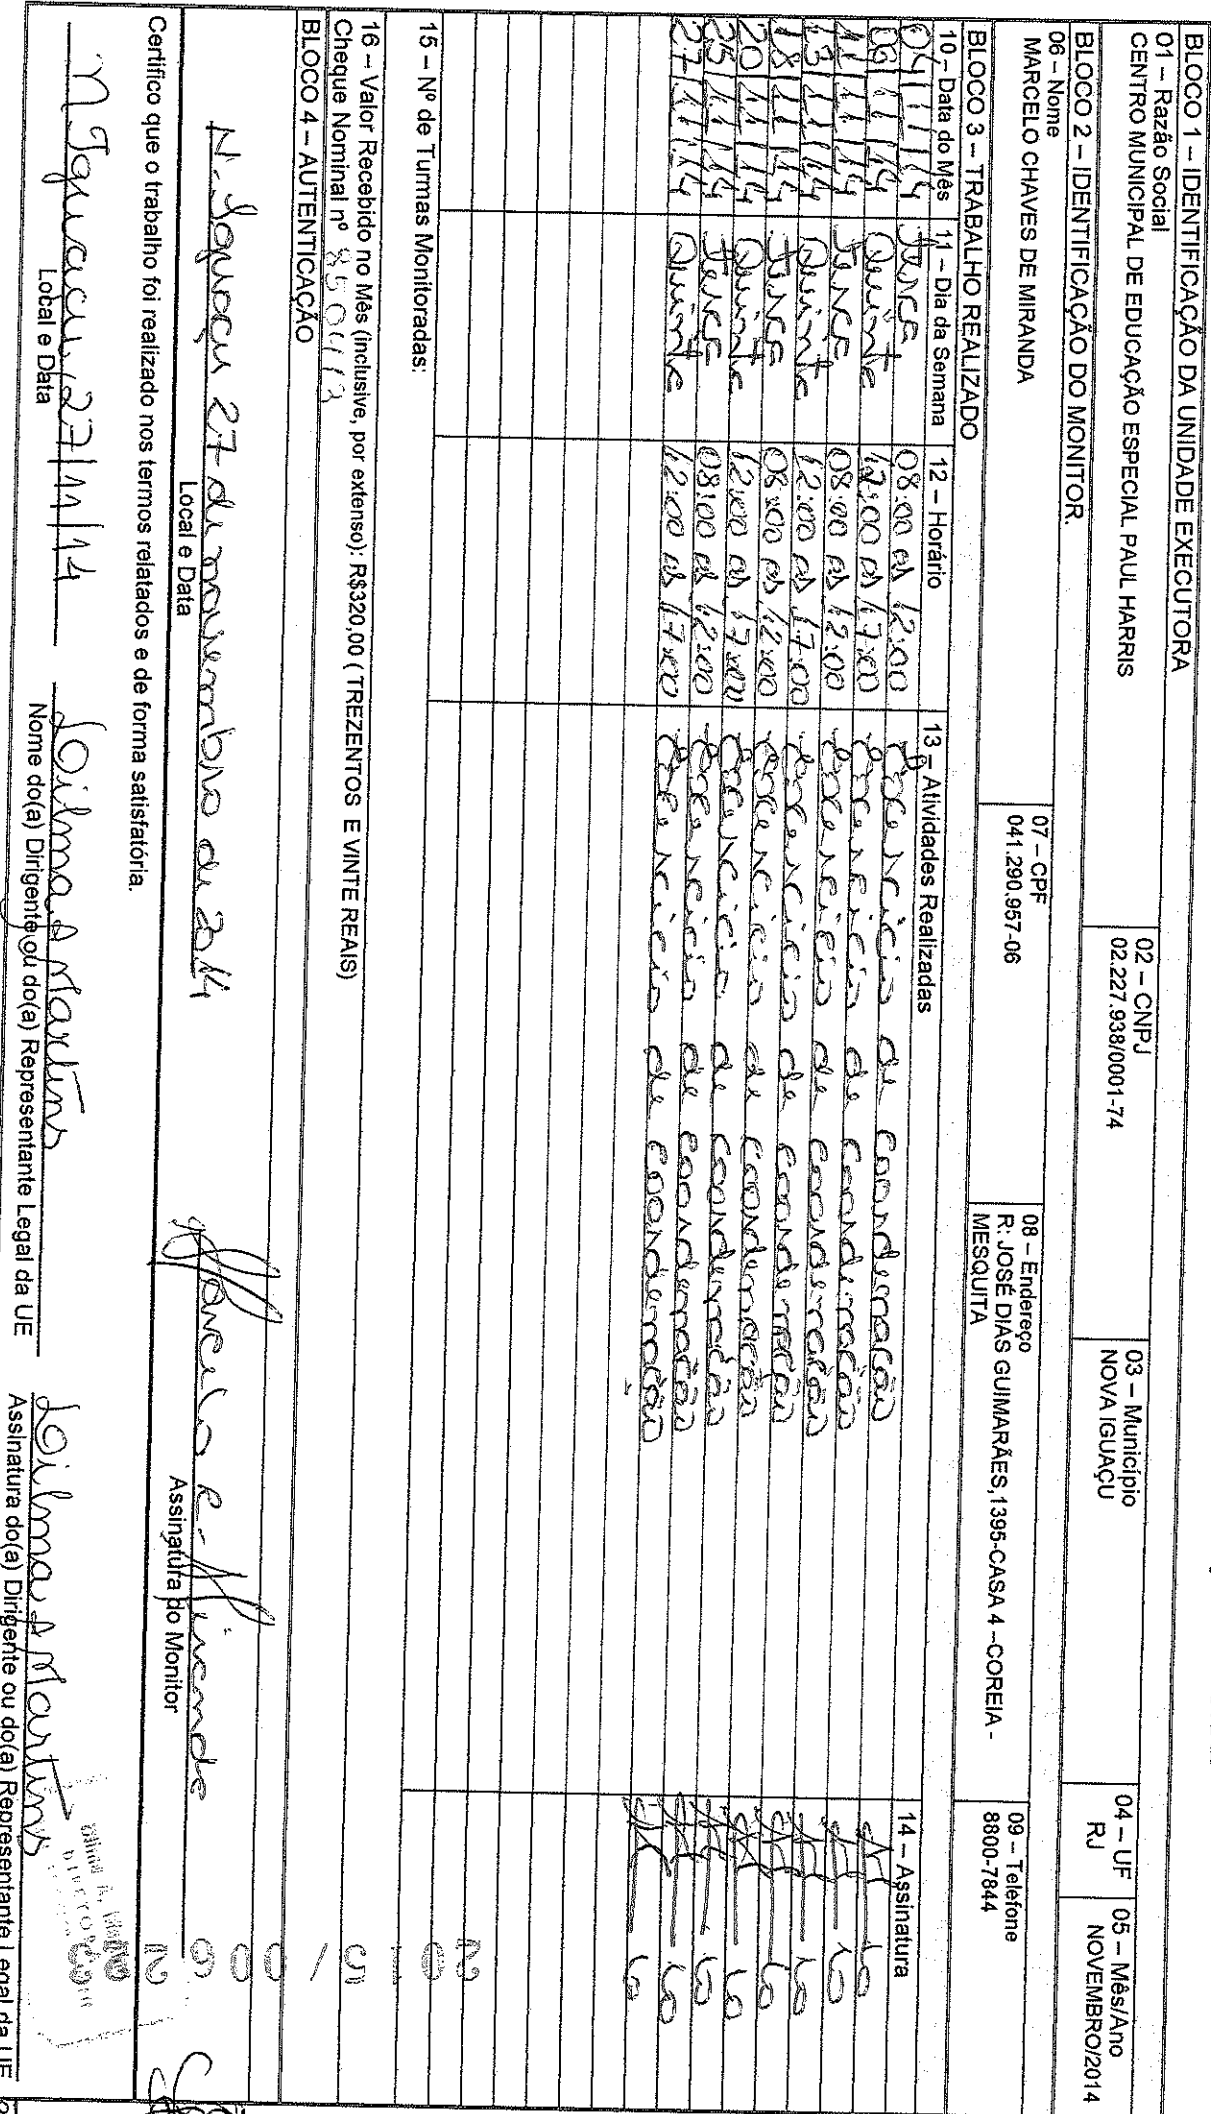 BLOCO 1 – IDENTIFICAÇÃO DA UNIDADE EXECUTORA
01 – Razão Social
CENTRO MUNICIPAL DE EDUCAÇÃO ESPECIAL PAUL HARRIS
02 – CNPJ
02.227.938/0001-74
03 – Município
NOVA IGUAÇU
04 – UF
RJ
05 – Mês/Ano
NOVEMBRO/2014
BLOCO 2 – IDENTIFICAÇÃO DO MONITOR
06 – Nome
MARCELO CHAVES DE MIRANDA
07 – CPF
041.290.957-06
08 – Endereço
R: JOSÉ DIAS GUIMARÃES,1395-CASA 4 –COREIA -
MESQUITA
09 – Telefone
8800-7844
BLOCO 3 – TRABALHO REALIZADO
10 – Data do Mês 11 – Dia da Semana 12 – Horário 13 – Atividades Realizadas 14 – Assinatura
04/11/14 Terça 08:00 às 12:00 Exercício de Coordenação
06/11/14 Quinta 12:00 às 17:00 Exercício de Coordenação
11/11/14 Terça 08:00 às 12:00 Exercício de Coordenação
13/11/14 Quinta 12:00 às 17:00 Exercício de Coordenação
18/11/14 Terça 08:00 às 12:00 Exercício de Coordenação
20/11/14 Quinta 12:00 às 17:00 Exercício de Coordenação
25/11/14 Terça 08:00 às 12:00 Exercício de Coordenação
27/11/14 Quinta 12:00 às 17:00 Exercício de Coordenação
15 – Nº de Turmas Monitoradas:
16 – Valor Recebido no Mês (inclusive, por extenso): R$320,00 ( TREZENTOS E VINTE REAIS)
Cheque Nominal nº
BLOCO 4 – AUTENTICAÇÃO
N. Iguaçu 27 de novembro de 2014 Marcelo C. Miranda
Local e Data Assinatura do Monitor
Certifico que o trabalho foi realizado nos termos relatados e de forma satisfatória.
N. Iguaçu, 27/11/14 Dilma A Martins Dilma A Martins
Local e Data Nome do(a) Dirigente ou do(a) Representante Legal da UE Assinatura do(a) Dirigente ou do(a) Representante Legal da UE